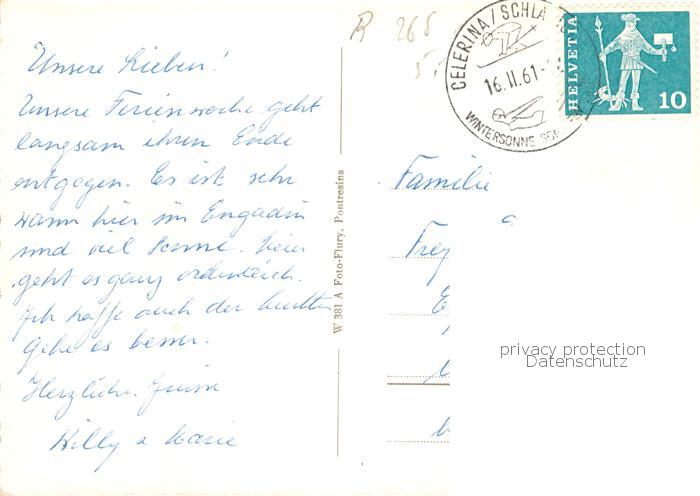 Unsere Lieben!
Unsere Ferienwoche geht
langsam ihren Ende
entgegen. Es ist sehr
warm hier im Engadin
und viel Sonne.
geht es ganz ordentlich.
Ich hoffe auch der Mutter
gehe es besser.
Herzliche Grüsse
Willy & Marie
W 381 A Foto-Flury, Pontresina
R 265
5.
CELERINA/SCHLA
16.II.61
WINTERSONNE
HELVETIA
10
Familie
Frey
privacy protection
Datenschutz